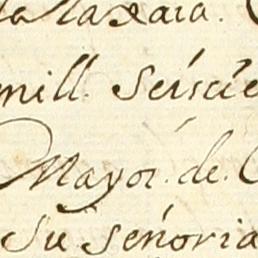 la laxaca.
mill. Seiscie
Mayor. de.
Su señoria